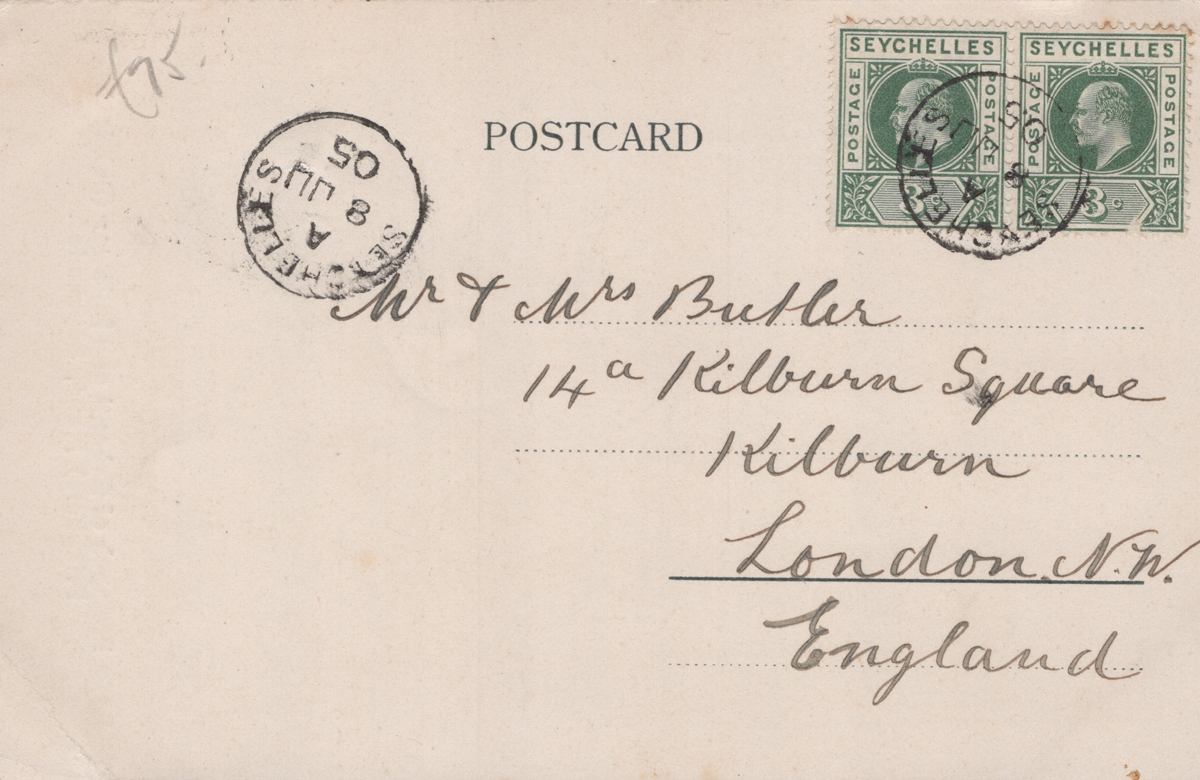 £95.
POSTCARD
SEYCHELLES
POSTAGE
POSTAGE
3c
SEYCHELLES
POSTAGE
POSTAGE
3c
SEYCHELLES
A
8
JU
05
SEYCHELLES
A
8
JU
05
Mr & Mrs Butler
14a Kilburn Square
Kilburn
London. N.W.
England